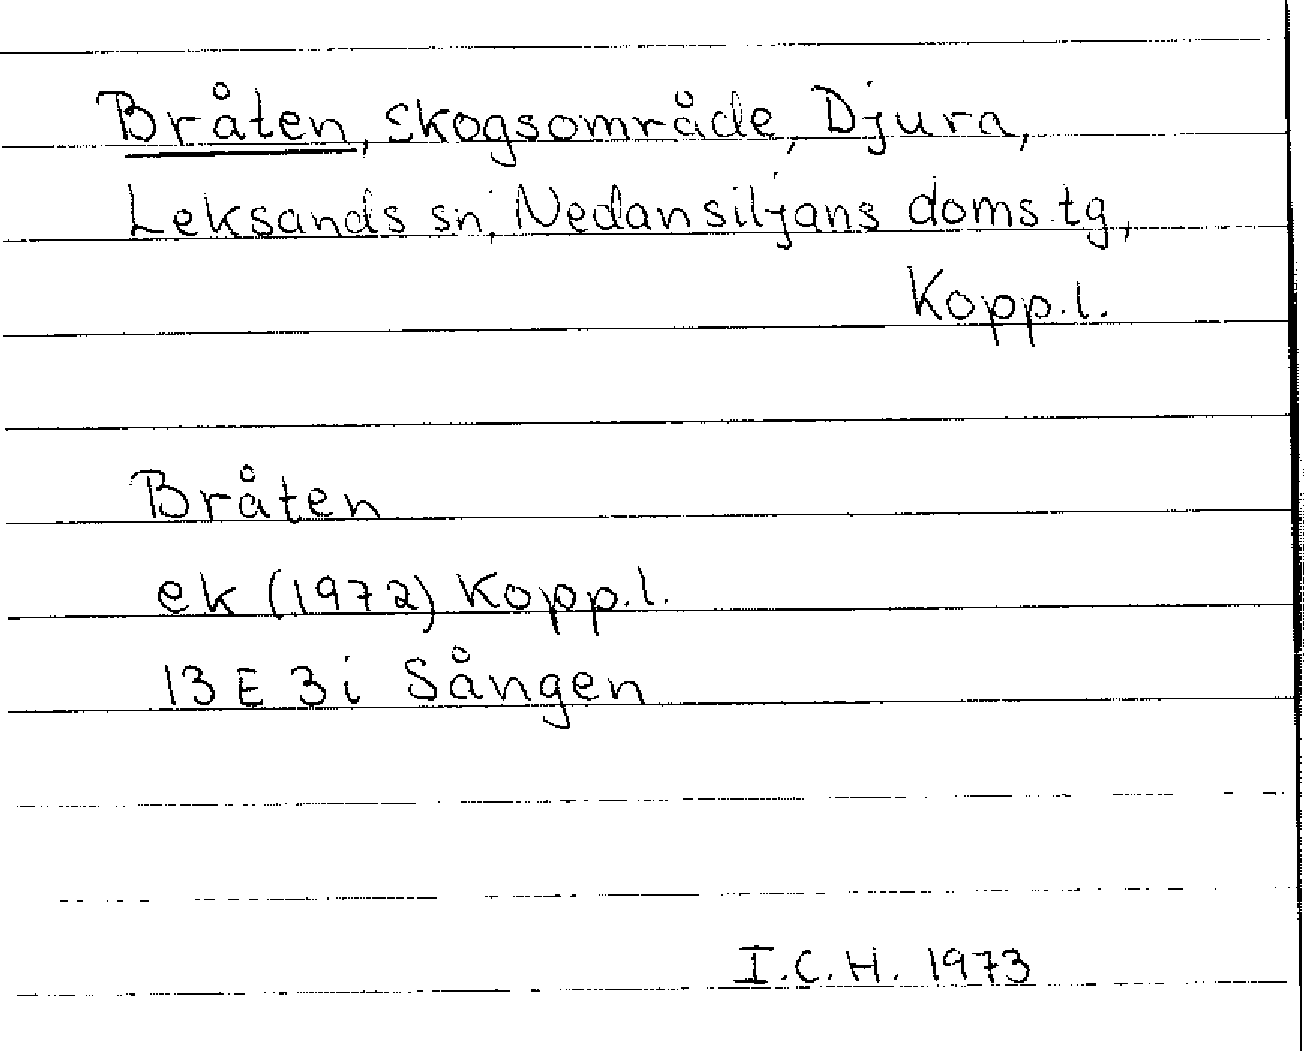 Bråten, skogsområde, Djura,
Leksands sn, Nedansiljans doms.tg,
Kopp.l.
Bråten
ek (1972) Kopp.l.
13 E 3i Sången
I.C.H. 1973